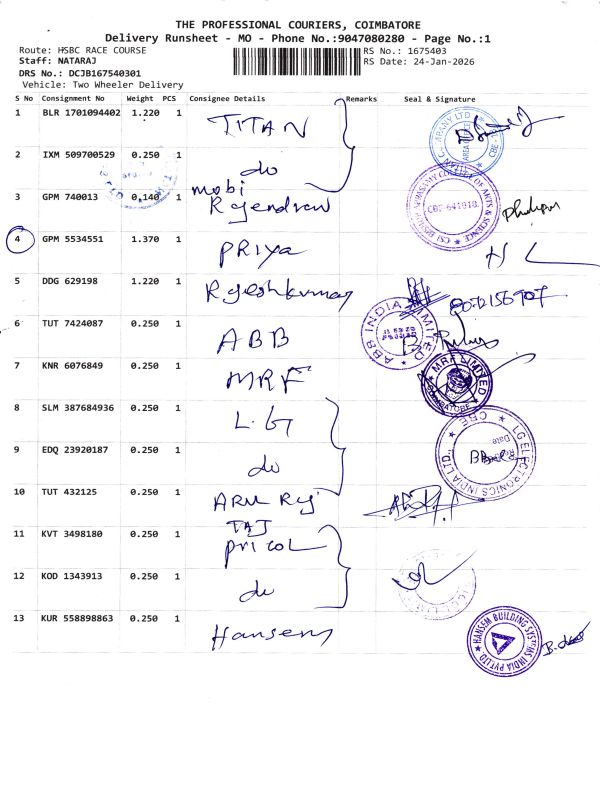 THE PROFESSIONAL COURIERS, COIMBATORE
Delivery Runsheet - MO - Phone No.:9047080280 - Page No.:1
Route: HSBC RACE COURSE
Staff: NATARAJ
DRS No.: DCJB167540301
Vehicle: Two Wheeler Delivery
RS No.: 1675403
RS Date: 24-Jan-2026
S No Consignment No Weight PCS Consignee Details Remarks Seal & Signature
1 BLR 1701094402 1.220 1 TITAN
2 IXM 509700529 0.250 1 do
3 GPM 740013 0.140 1 mobi Rajendran
CBE-641018.
4 GPM 5534551 1.370 1 PRIYA
5 DDG 629198 1.220 1 Rajeshkumar
6 TUT 7424087 0.250 1 ABB
ABB INDIA LIMITED
7 KNR 6076849 0.250 1 MRF
MRF LIMITED
COIMBATORE
8 SLM 387684936 0.250 1 L.G
9 EDQ 23920187 0.250 1 do
LG ELECTRONICS INDIA LTD., CBE
10 TUT 432125 0.250 1 ARUL Raj
11 KVT 3498180 0.250 1 TAJ pricol
12 KOD 1343913 0.250 1 do
13 KUR 558898863 0.250 1 Hansem
HANSEM BUILDING SYSTEMS INDIA PVT LTD.